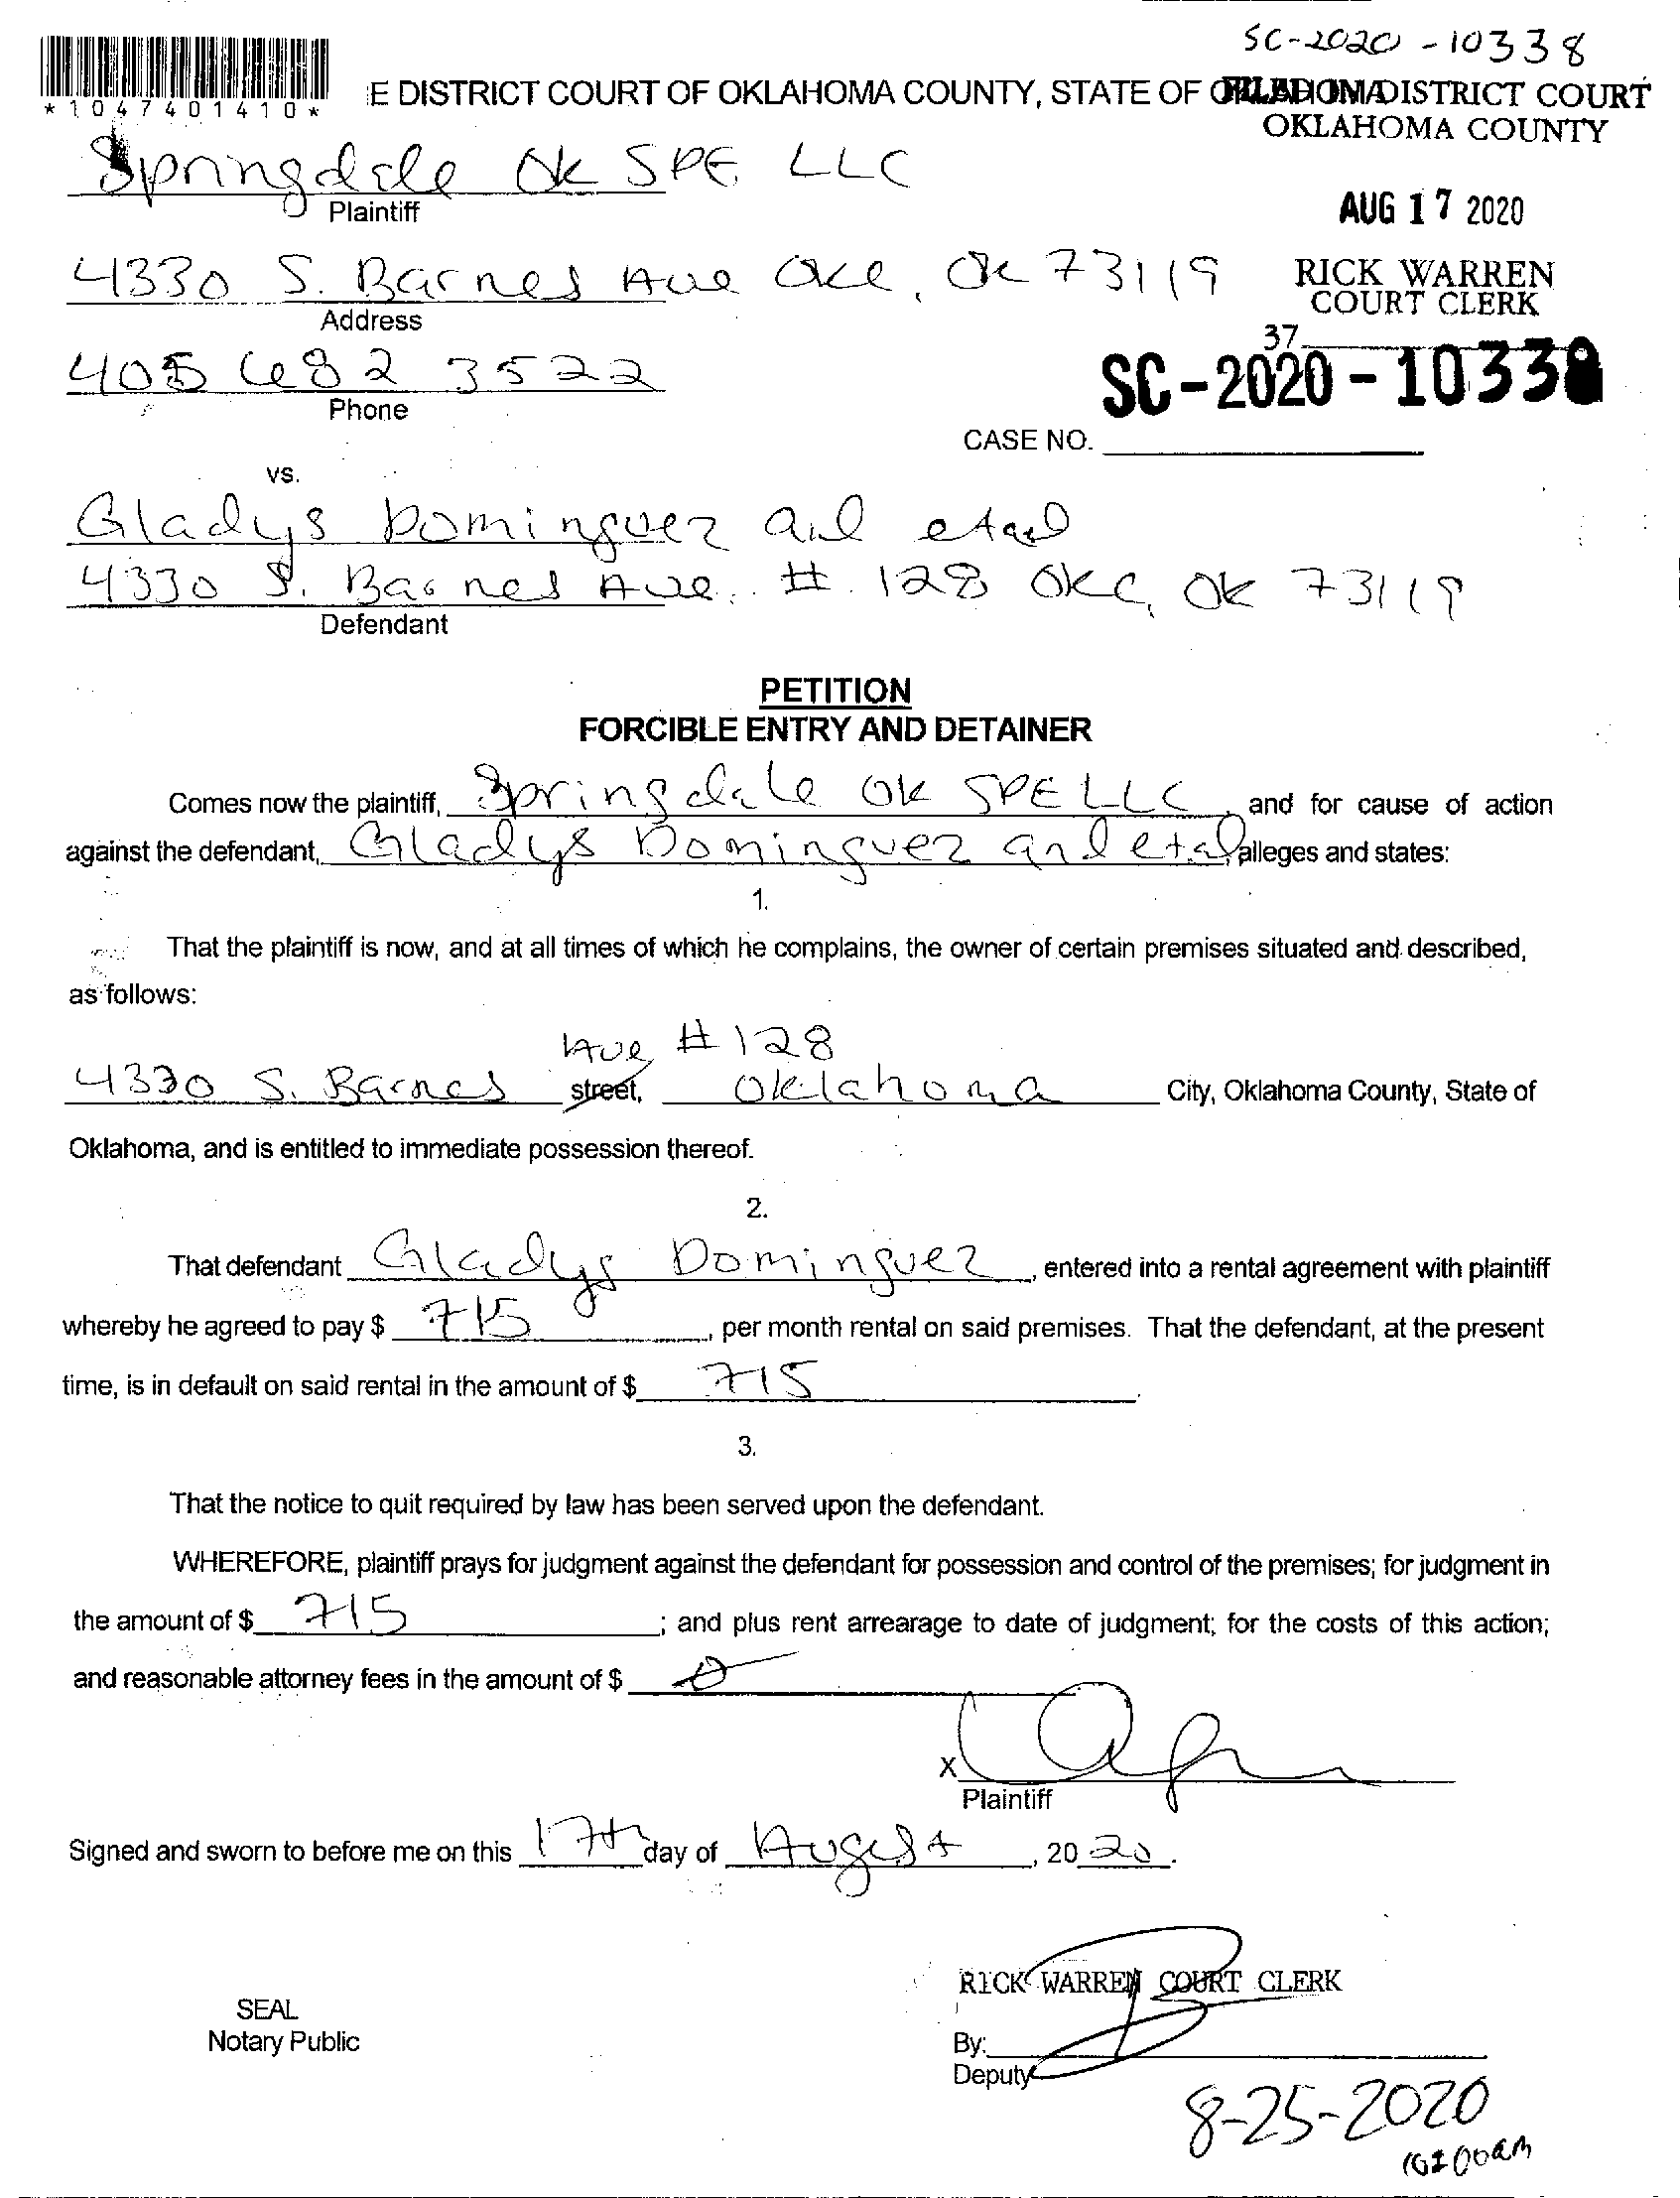 SC-2020-10338
*1047401410*
E DISTRICT COURT OF OKLAHOMA COUNTY, STATE OF
DISTRICT COURT
OKLAHOMA COUNTY
Springdale Ok SPE LLC
Plaintiff
AUG 17 2020
4330 S. Barnes Ave OKC, OK 73119
Address
RICK WARREN
COURT CLERK
37
405 682 3522
Phone
SC-2020-10338
CASE NO.
vs.
Gladys Dominguez and etal
4330 S. Barnes Ave. # 128 OKC, OK 73119
Defendant
PETITION
FORCIBLE ENTRY AND DETAINER
Comes now the plaintiff, Springdale OK SPE LLC, and for cause of action
against the defendant, Gladys Dominguez and etal, alleges and states:
1.
That the plaintiff is now, and at all times of which he complains, the owner of certain premises situated and described,
as follows:
Ave # 128
4330 S. Barnes street, Oklahoma City, Oklahoma County, State of
Oklahoma, and is entitled to immediate possession thereof.
2.
That defendant Gladys Dominguez, entered into a rental agreement with plaintiff
whereby he agreed to pay $ 715, per month rental on said premises. That the defendant, at the present
time, is in default on said rental in the amount of $ 715.
3.
That the notice to quit required by law has been served upon the defendant.
WHEREFORE, plaintiff prays for judgment against the defendant for possession and control of the premises; for judgment in
the amount of $ 715; and plus rent arrearage to date of judgment; for the costs of this action;
and reasonable attorney fees in the amount of $ 0
X
Plaintiff
Signed and sworn to before me on this 17th day of August, 2020.
RICK WARREN COURT CLERK
SEAL
Notary Public
By:
Deputy
8-25-2020
10:00am